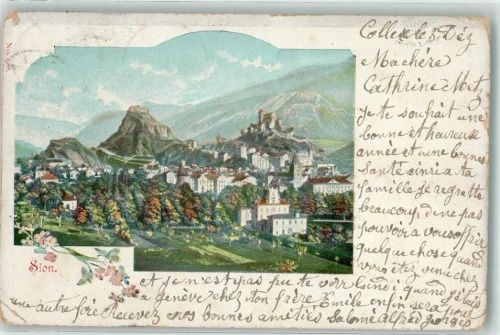 No. 688.
Collex le 3 Déz
Ma chére
Cathrine Metz
Je te souhait une
bonne et heureuse
année et une bonne
Sante ainsi a ta
famille Je regrette
beaucoup de ne pas
pouvoir a vous offrir
quelque chose quand
vous itez venu chez
Sion.
et je n'est pas pu te voir lundi quand j'étais
a Genéve chez ton frére Emile enfin sera pour
une autre foie Recevez nos bonnes amitiés Salomé Alfred